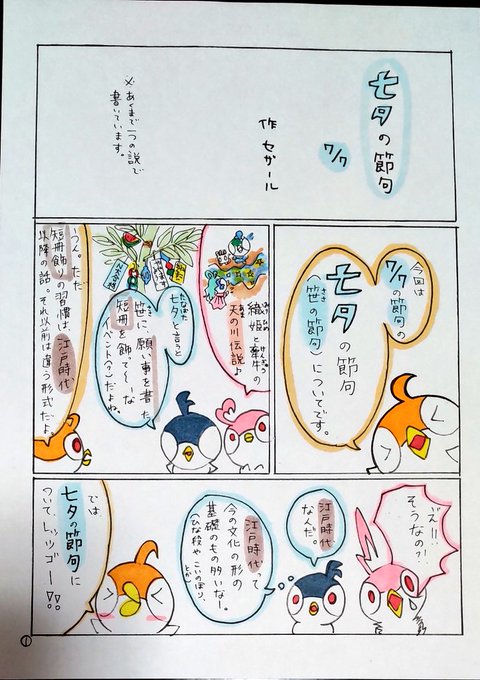 七夕の節句
7/7
作 せかーる
※あくまで一つの説で
書いています。
今回は
7/7の節句の
七夕の節句
(笹の節句)についてです。
ささ
織姫と牽牛の
おりひめ
けんぎゅう
天の川伝説♪
七夕と言うと
たなばた
笹に、願い事を書いた
短冊を飾て〜な
イベント(?)だよね。
うん。ただ
短冊飾りの習慣は、江戸時代
以降の話。それ以前は違う形式だよ。
え"ー!!
そうなの?!
江戸時代
なんだ。
江戸時代って
今の文化の形の
基礎のもの多いなー。
(ひな段や
こいのぼり、
とか)
では
七夕の節句に
ついてレッツゴー!!
①